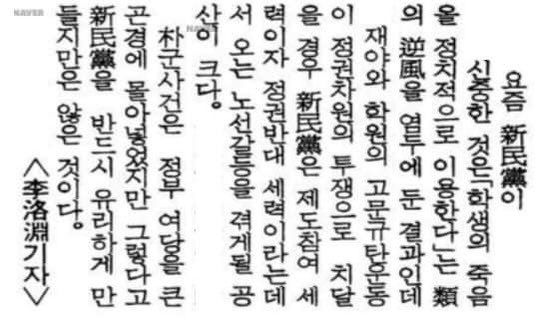 요즘 新民黨이
신중한 것은「학생의 죽음
을 정치적으로 이용한다」는 類
의 逆風을 염두에 둔 결과인데
재야와 학원의 고문규탄운동
이 정권차원의 투쟁으로 치달
을 경우 新民黨은 제도참여 세
력이자 정권반대 세력이라는데
서 오는 노선갈등을 겪게될 공
산이 크다.
朴군사건은 정부 여당을 큰
곤경에 몰아넣었지만 그렇다고
新民黨을 반드시 유리하게 만
들지만은 않은 것이다.
<李洛淵기자>
NAVER
NAVER